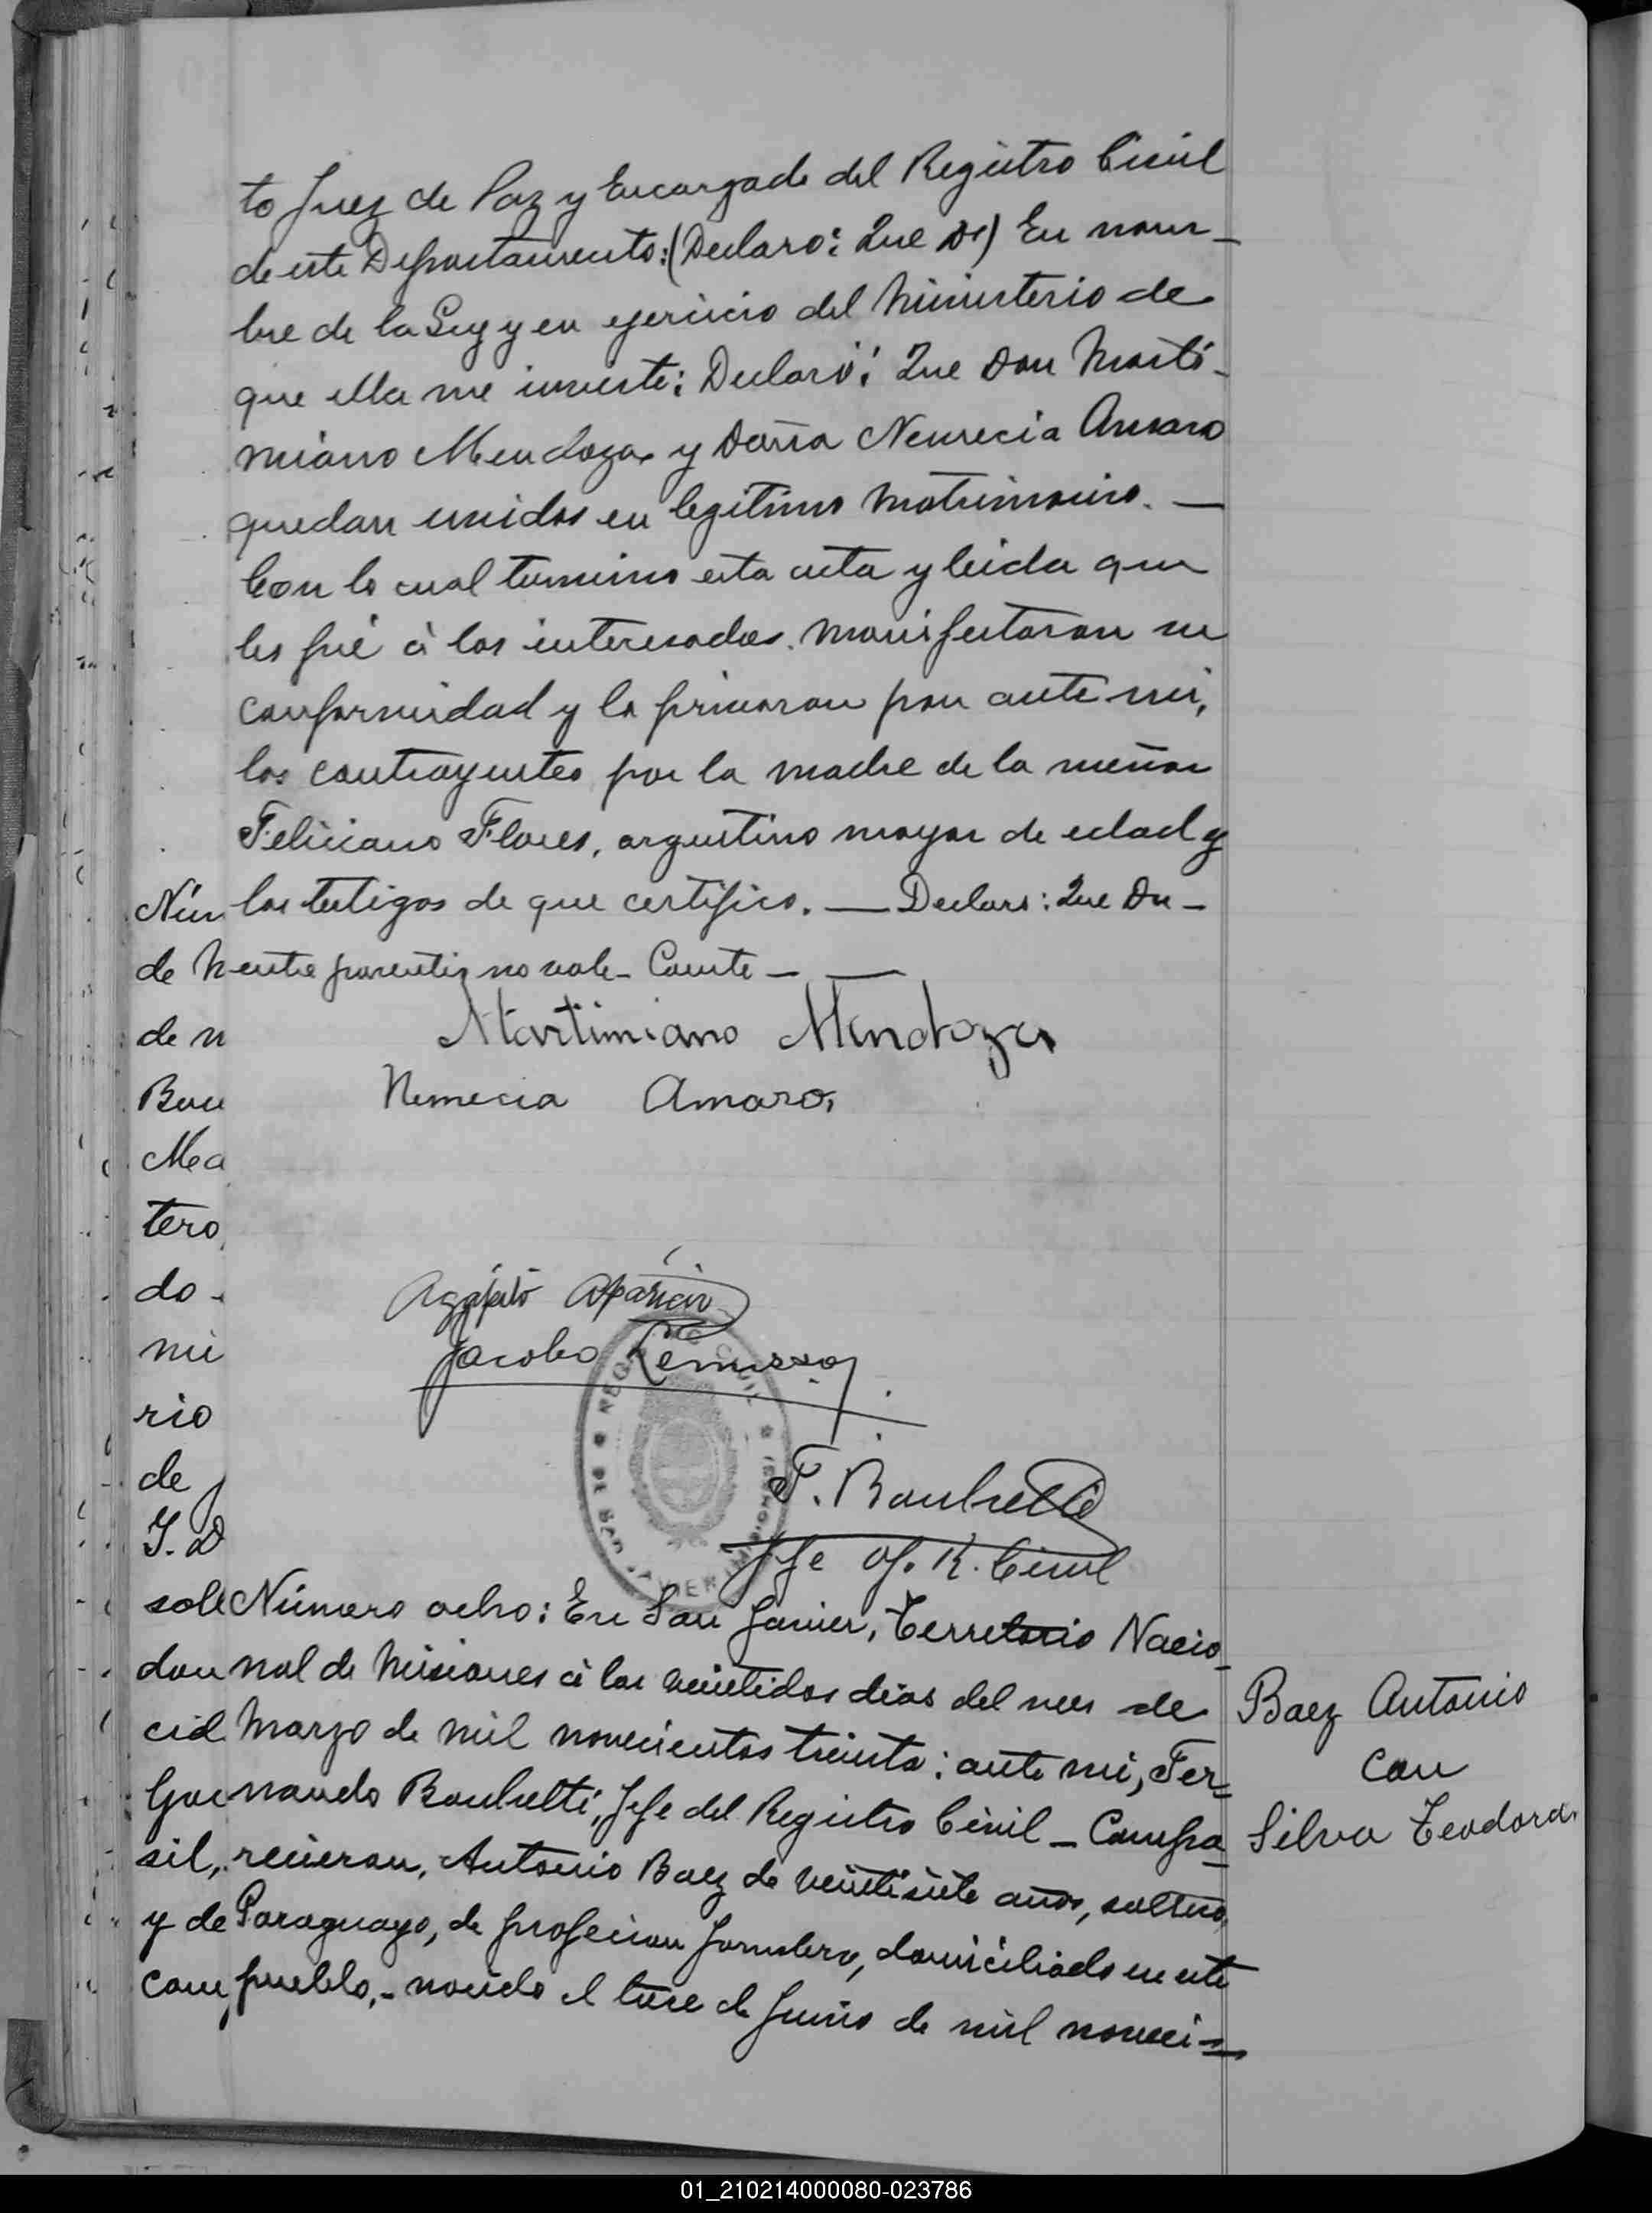 to Juez de Paz y Encargado del Registro Civil
de este Departamento: (Declaro: Que Dn) En nom-
bre de la Ley y en ejercicio del Ministerio de
que ella me inviste: Declaró: Que Don Marti-
miano Mendoza y Doña Nemecia Amaro
quedan unidos en legitimo Matrimonio. —
Con lo cual termino esta acta y leida que
les fué á los interesados. Manifestaron su
conformidad y la firmaron por ante mi,
los contrayentes por la madre de la menor
Feliciano Flores, argentino mayor de edad y
los testigos de que certifico. — Declaro: Que Dn -
entre parentis no vale - Conste - —
Martimiano Mendoza
Nemecia Amaro,
Agapito Aparicio
Jacobo
F. Boubetti
Jefe Of. R. Civil
REGISTRO CIVIL
DE SAN JAVIER
Número ocho: En San Javier, Territorio Nacio-
nal de Misiones á los veintidos dias del mes de
Marzo de mil novecientos treinta: ante mi, Fer-
nando Boubetti, Jefe del Registro Civil - Compa-
recieron, Antonio Baez de veintisiete años, soltero,
Paraguayo, de profecion Jornalero, domiciliado en este
pueblo, - nacido el trece de Junio de mil noveci-
Baez Antonio
con
Silva Teodora
Núm
de M
de n
Bou
Mea
tero,
do -
mi
rio
de
J. D
sole
don
cid
Gue
sil,
y de
com
01_210214000080-023786